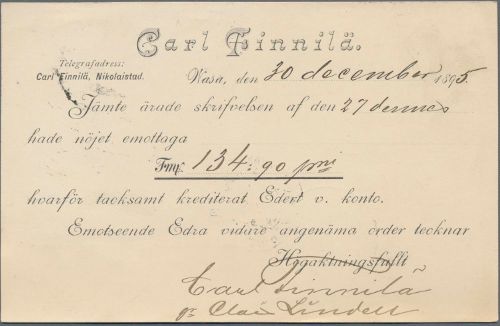 Carl Finnilä.
Telegrafadress:
Carl Finnilä, Nikolaistad.
Wasa, den 30 december 1895.
Jämte ärade skrifvelsen af den 27 dennes
hade nöjet emottaga
Fmk 134:90 pni
hvarför tacksamt krediterat Edert v. konto.
Emotseende Edra vidare angenäma order tecknar
Högaktningsfullt
Carl Finnilä
Lindell